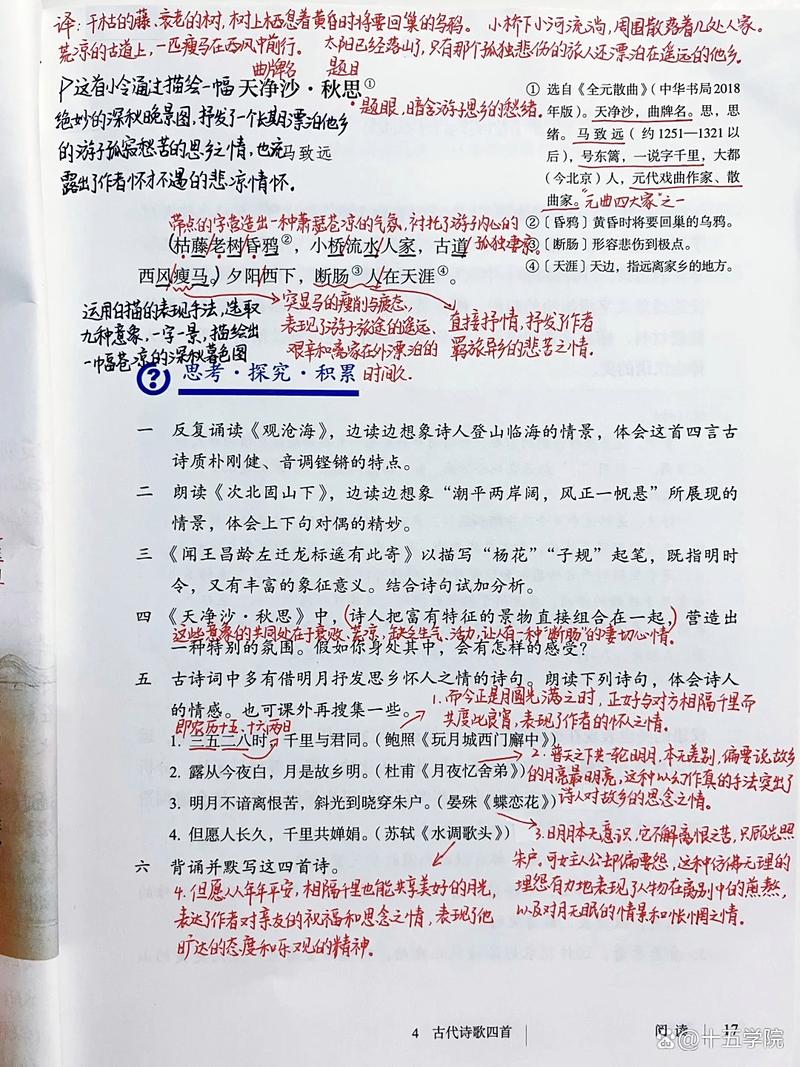 译：干枯的藤、衰老的树，树上栖息着黄昏时将要回巢的乌鸦。 小桥下小河流淌，周围散落着几处人家。
荒凉的古道上，一匹瘦马在西风中前行。 太阳已经落山了，只有那个孤独悲伤的旅人还漂泊在遥远的他乡。
曲牌名 题目
天净沙·秋思①
题眼，暗含游子思乡的愁绪。
马致远
这首小令通过描绘一幅
绝妙的深秋晚景图，抒发了一个长期漂泊他乡
的游子孤寂愁苦的思乡之情，也流
露出了作者怀才不遇的悲凉情怀。
① 选自《全元散曲》（中华书局2018
年版）。天净沙，曲牌名。思，思
绪。马致远（约1251—1321以
后），号东篱，一说字千里，大都
（今北京）人，元代戏曲作家、散
曲家。"元曲四大家"之一
②〔昏鸦〕黄昏时将要回巢的乌鸦。
③〔断肠〕形容悲伤到极点。
④〔天涯〕天边，指远离家乡的地方。
带点的字营造出一种萧瑟苍凉的气氛，衬托了游子内心的
孤独凄凉。
（枯藤老树昏鸦②，小桥流水人家，古道
西风瘦马。）夕阳西下，断肠③人在天涯④。
运用白描的表现手法，选取
九种意象，一字一景，描绘出
一幅苍凉的深秋暮色图
突显马的瘦削与疲态，
表现了游子旅途的遥远、
艰辛和离家在外漂泊的
时间久。
直接抒情，抒发了作者
羁旅异乡的悲苦之情。
思考·探究·积累
一 反复诵读《观沧海》，边读边想象诗人登山临海的情景，体会这首四言古
诗质朴刚健、音调铿锵的特点。
二 朗读《次北固山下》，边读边想象“潮平两岸阔，风正一帆悬”所展现的
情景，体会上下句对偶的精妙。
三 《闻王昌龄左迁龙标遥有此寄》以描写“杨花”“子规”起笔，既指明时
令，又有丰富的象征意义。结合诗句试加分析。
四 《天净沙·秋思》中，（诗人把富有特征的景物直接组合在一起，）营造出
这些意象的共同处在于衰败、荒凉，缺乏生气、活动，让人有一种“断肠”的凄切心情。
一种特别的氛围。假如你身处其中，会有怎样的感受？
五 古诗词中多有借明月抒发思乡怀人之情的诗句。朗读下列诗句，体会诗人
的情感。也可课外再搜集一些。
1.而今正是月圆光满之时，正好与对方相隔千里而
共度此良宵，表现了作者的怀人之情。
即农历十五、十六两日
1. 三五二八时，千里与君同。（鲍照《玩月城西门廨中》）
2. 露从今夜白，月是故乡明。（杜甫《月夜忆舍弟》）
3. 明月不谙离恨苦，斜光到晓穿朱户。（晏殊《蝶恋花》）
4. 但愿人长久，千里共婵娟。（苏轼《水调歌头》）
2.普天之下共一轮明月，本无差别，偏要说故乡
的月亮最明亮，这种以幻作真的手法突出了
诗人对故乡的思念之情。
六 背诵并默写这四首诗。
3.明月本无意识，它不解离恨之苦，只顾光照
朱户。可女主人公却偏要怨，这种仿佛无理的
埋怨有力地表现了人物在离别中的煎熬，
以及对月无眠的情景和怅惘之情。
4.但愿人人年年平安，相隔千里也能共享美好的月光，
表达了作者对亲友的祝福和思念之情，表现了他
旷达的态度和乐观的精神。
4 古代诗歌四首
阅读 17
@十五学院